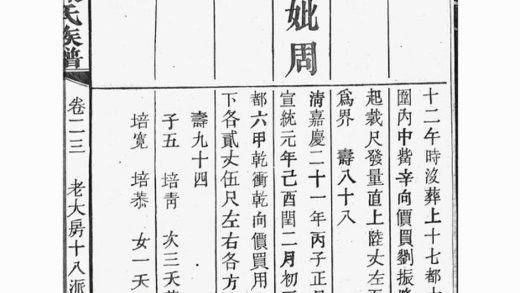 十二午時沒葬上十七都
圍內中觜辛向價買劉振
起裁尺發量直上陸丈左
爲界 壽八十八
妣周
清嘉慶二十一年丙子正
宣統元年己酉閏二月初
都六甲乾衝乾向價買用
下各貳丈伍尺左右各方
壽九十四
子五 培靑 次三天
培寬 培恭 女一天
氏族譜
卷二三 老大房十八派